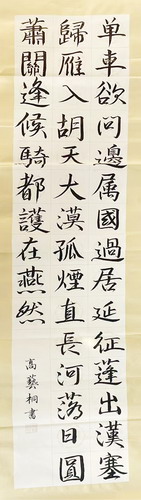 单車欲问邊属國過居延征蓬出漢塞
歸雁入胡天大漠孤煙直長河落日圓
蕭關逢候騎都護在燕然
高藝桐書